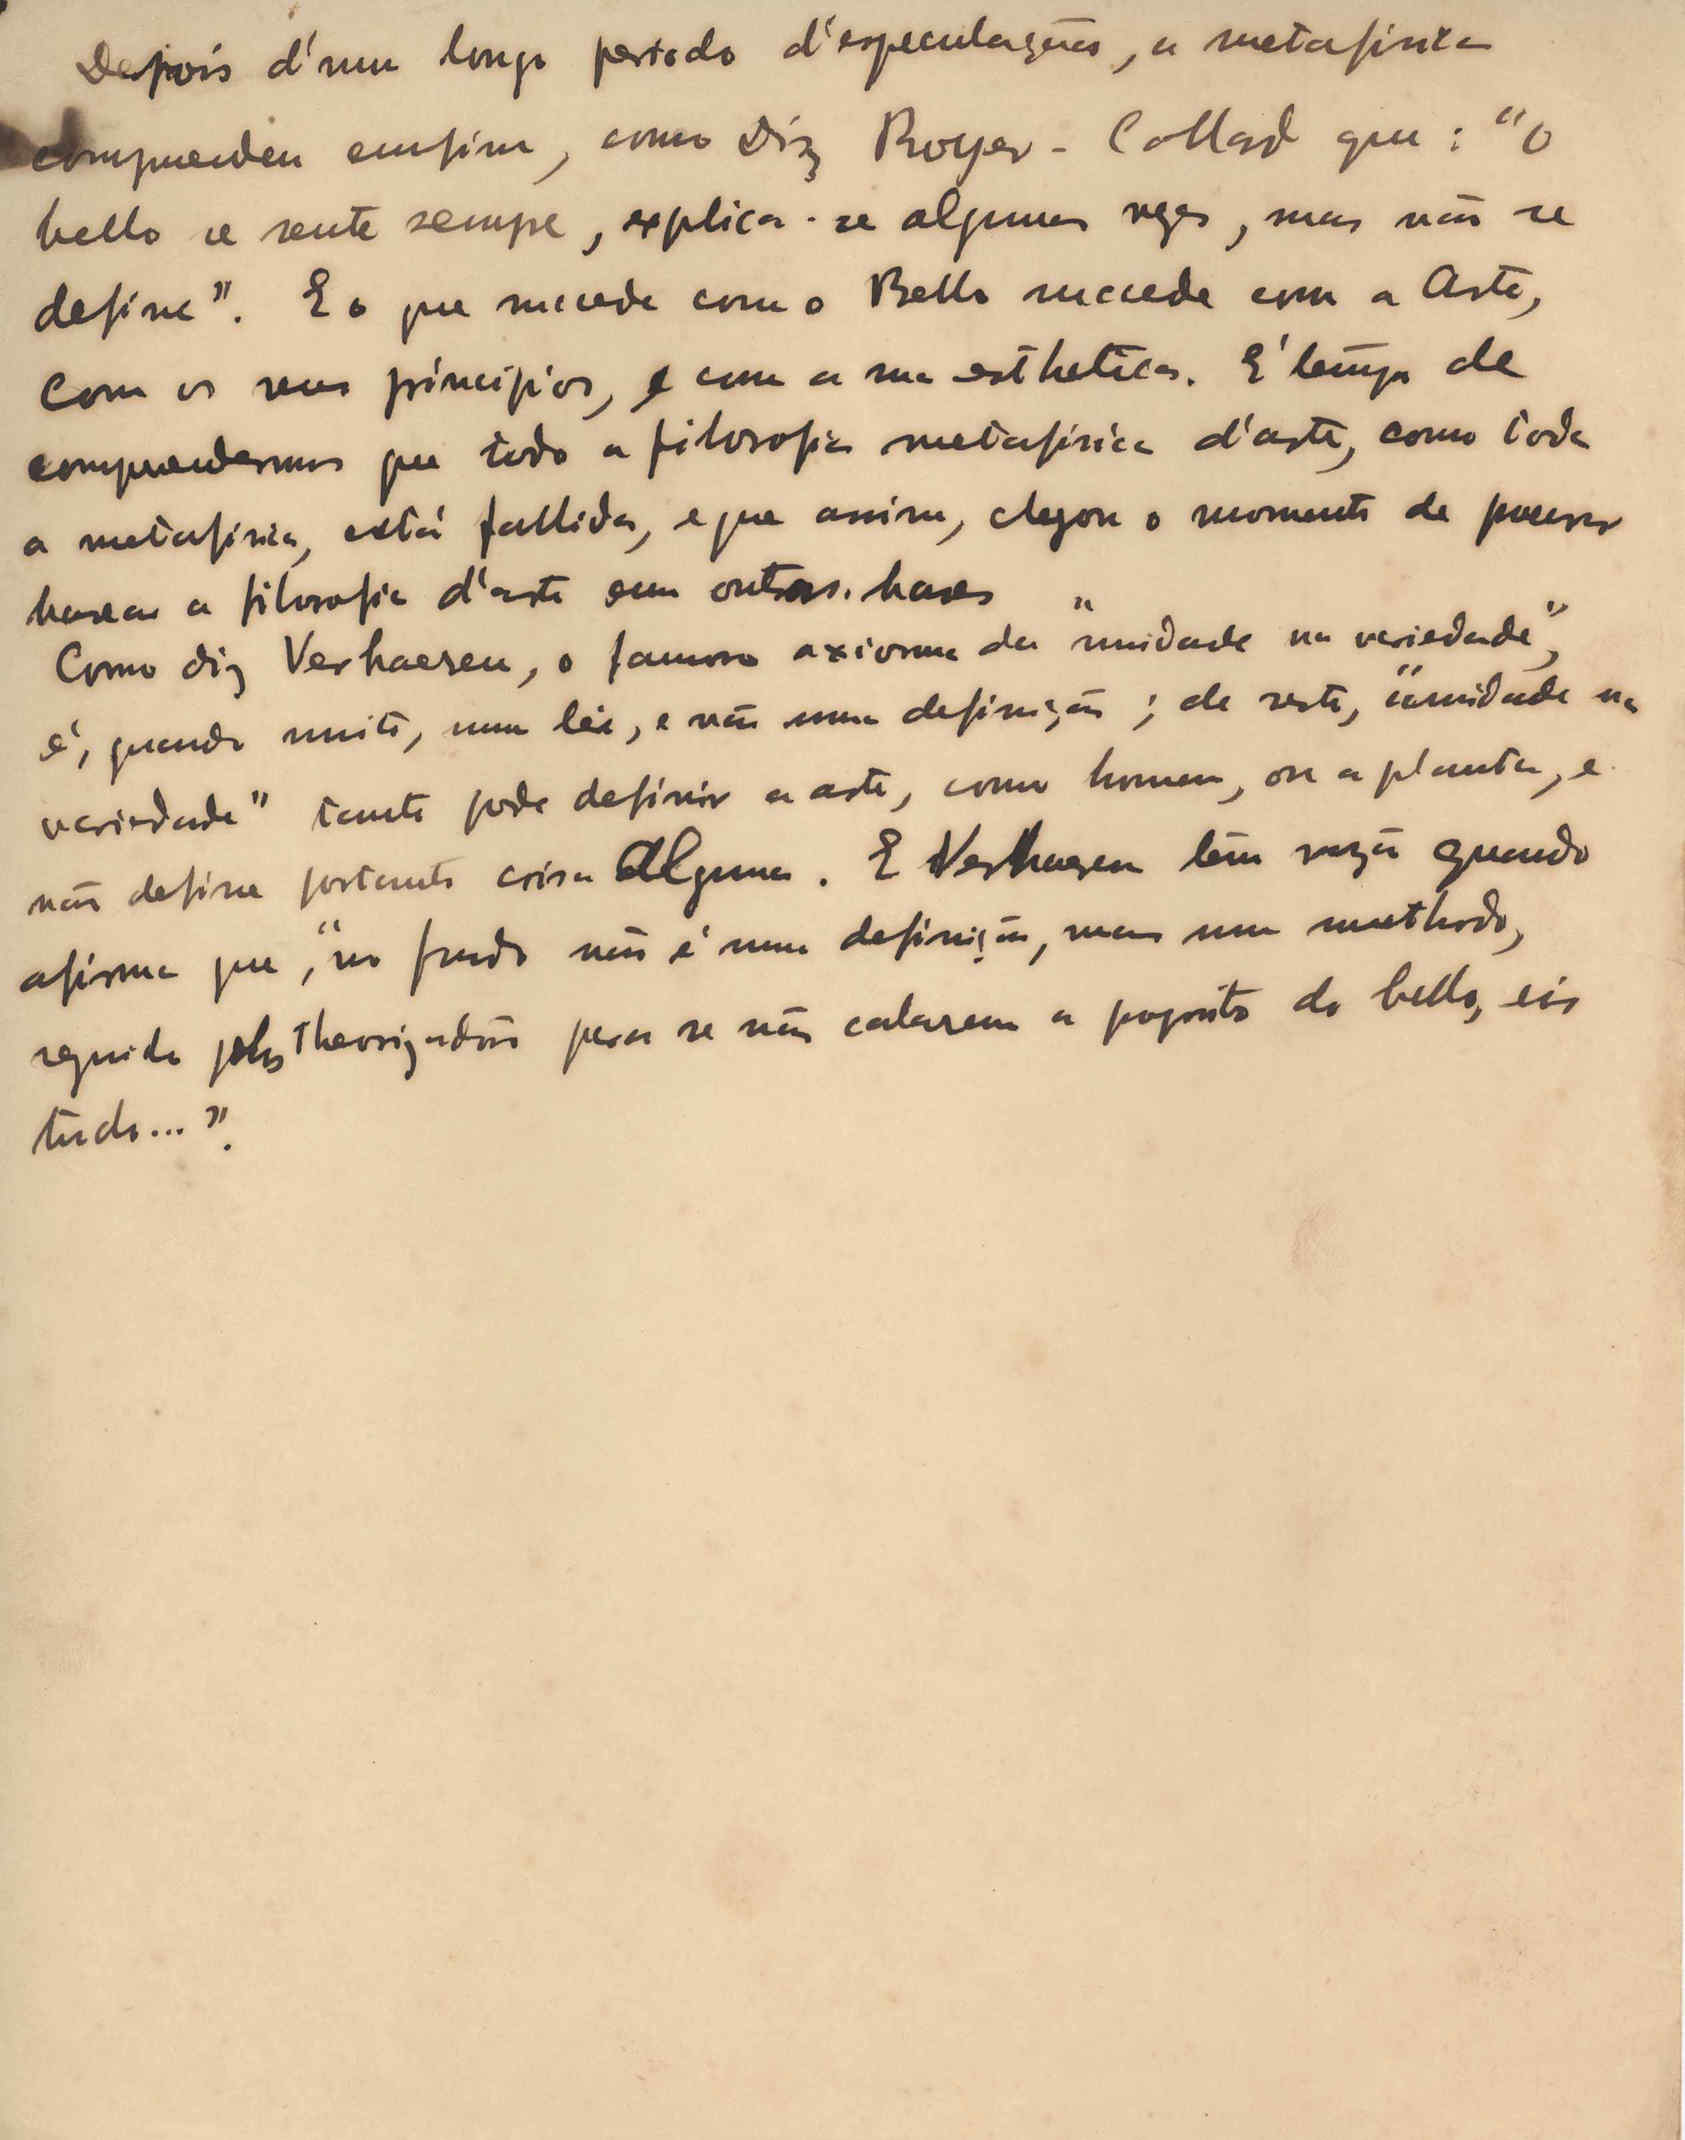 Depois d'um longo periodo d'especulações, a metafisica
comprendeu emfim, como Diz Royer-Collad que: "O
bello se sente sempre, explica-se algumas vezes, mas não se
define". E o que succede com o Bello succede com a Arte,
com os seus principios, e com a sua esthetica. E' tempo de
comprendermos que todo a filosofia metafisica d'arte, como toda
a metafisica, está fallida, e que assim, chegou o momento de procurar
basear a filosofia d'arte em outras bases
Como diz Verhaeren, o famoso axioma da "unidade na variedade",
é, quando muito, uma lei, e não uma definição; de resto, "a unidade na
variedade" tanto pode definir a arte, como homem, ou a planta, e
não define portanto coisa Alguma. E Verhaeren tem razão quando
afirma que, "no fundo não é uma definição, mas um methodo,
seguido pelos theorizadores para se não calarem a proposito do bello, eis
tudo...".